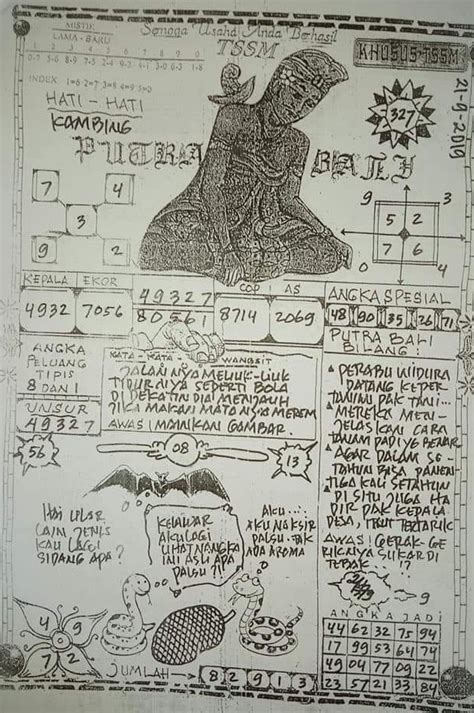 MISTIK
LAMA - BARU
Semoga Usaha Anda Berhasil
TSSM
KHUSUS TSSM
1 2 3 4 5 6 7 8 9 0
INDEX 1=6 2=7 3=8 4=9 5=0
HATI - HATI
KAMBING
PUTRA BALI
327
21-9-2019
7 4
3
9 2
9 3
5 2
7 6
0 4
KEPALA EKOR
4932 7056
49327
80561
COP AS
8714 2069
ANGKA SPESIAL
48 90 35 26 71
PUTRA BALI
BILANG:
ANGKA
PELUANG
TIPIS
8 DAN 1
UNSUR
49327
KATA - KATA WANGSIT
JALANNYA MELIUK-LIUK
TIDURNYA SEPERTI BOLA
DI DEKATIN DIA MENJAUH
JIKA MAKAN MATANSYA MEREM
AWAS! MAINKAN GAMBAR.
PRABU WIDURA
DATANG KEPER
TANIAN PAK TANI...
MEREKA MEN-
JELASKAN CARA
TANAM PADI YG BENAR
AGAR DALAM SE-
TAHUN BISA PANEN
TIGA KALI SETAHUN
DI SITU JUGA HA
DIR PAK KEPALA
DESA, IKUT TERTARIK
AWAS! GERAK-GE
RIKNYA SUKAR DI
TEBAK
!?
56
08
13
HAI ULAR
LAIN JENIS
KAU LAGI
SIDANG APA?
KELAWAR
AKU LAGI
LIHAT NANGKA
INI ASLI APA
PALSU ?!
AKU...
AKU NAKSIR
PALSU TAK
ADA AROMA
9
4 9
7 2
JUMLAH
8 2 9 1 3
ANGKA JADI
44 62 32 75 94
17 99 53 64 74
49 04 77 09 22
23 57 21 33 84